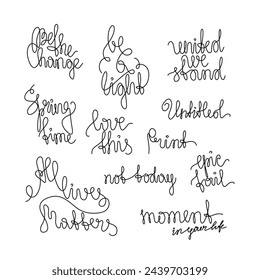 Be the
Change
be
a
light
united
we
stand
Spring
time
love
this
Untitled
Print
epic
fail
not today
All lives
Matters
moment
in your life
shutterstock.com · 2439703199